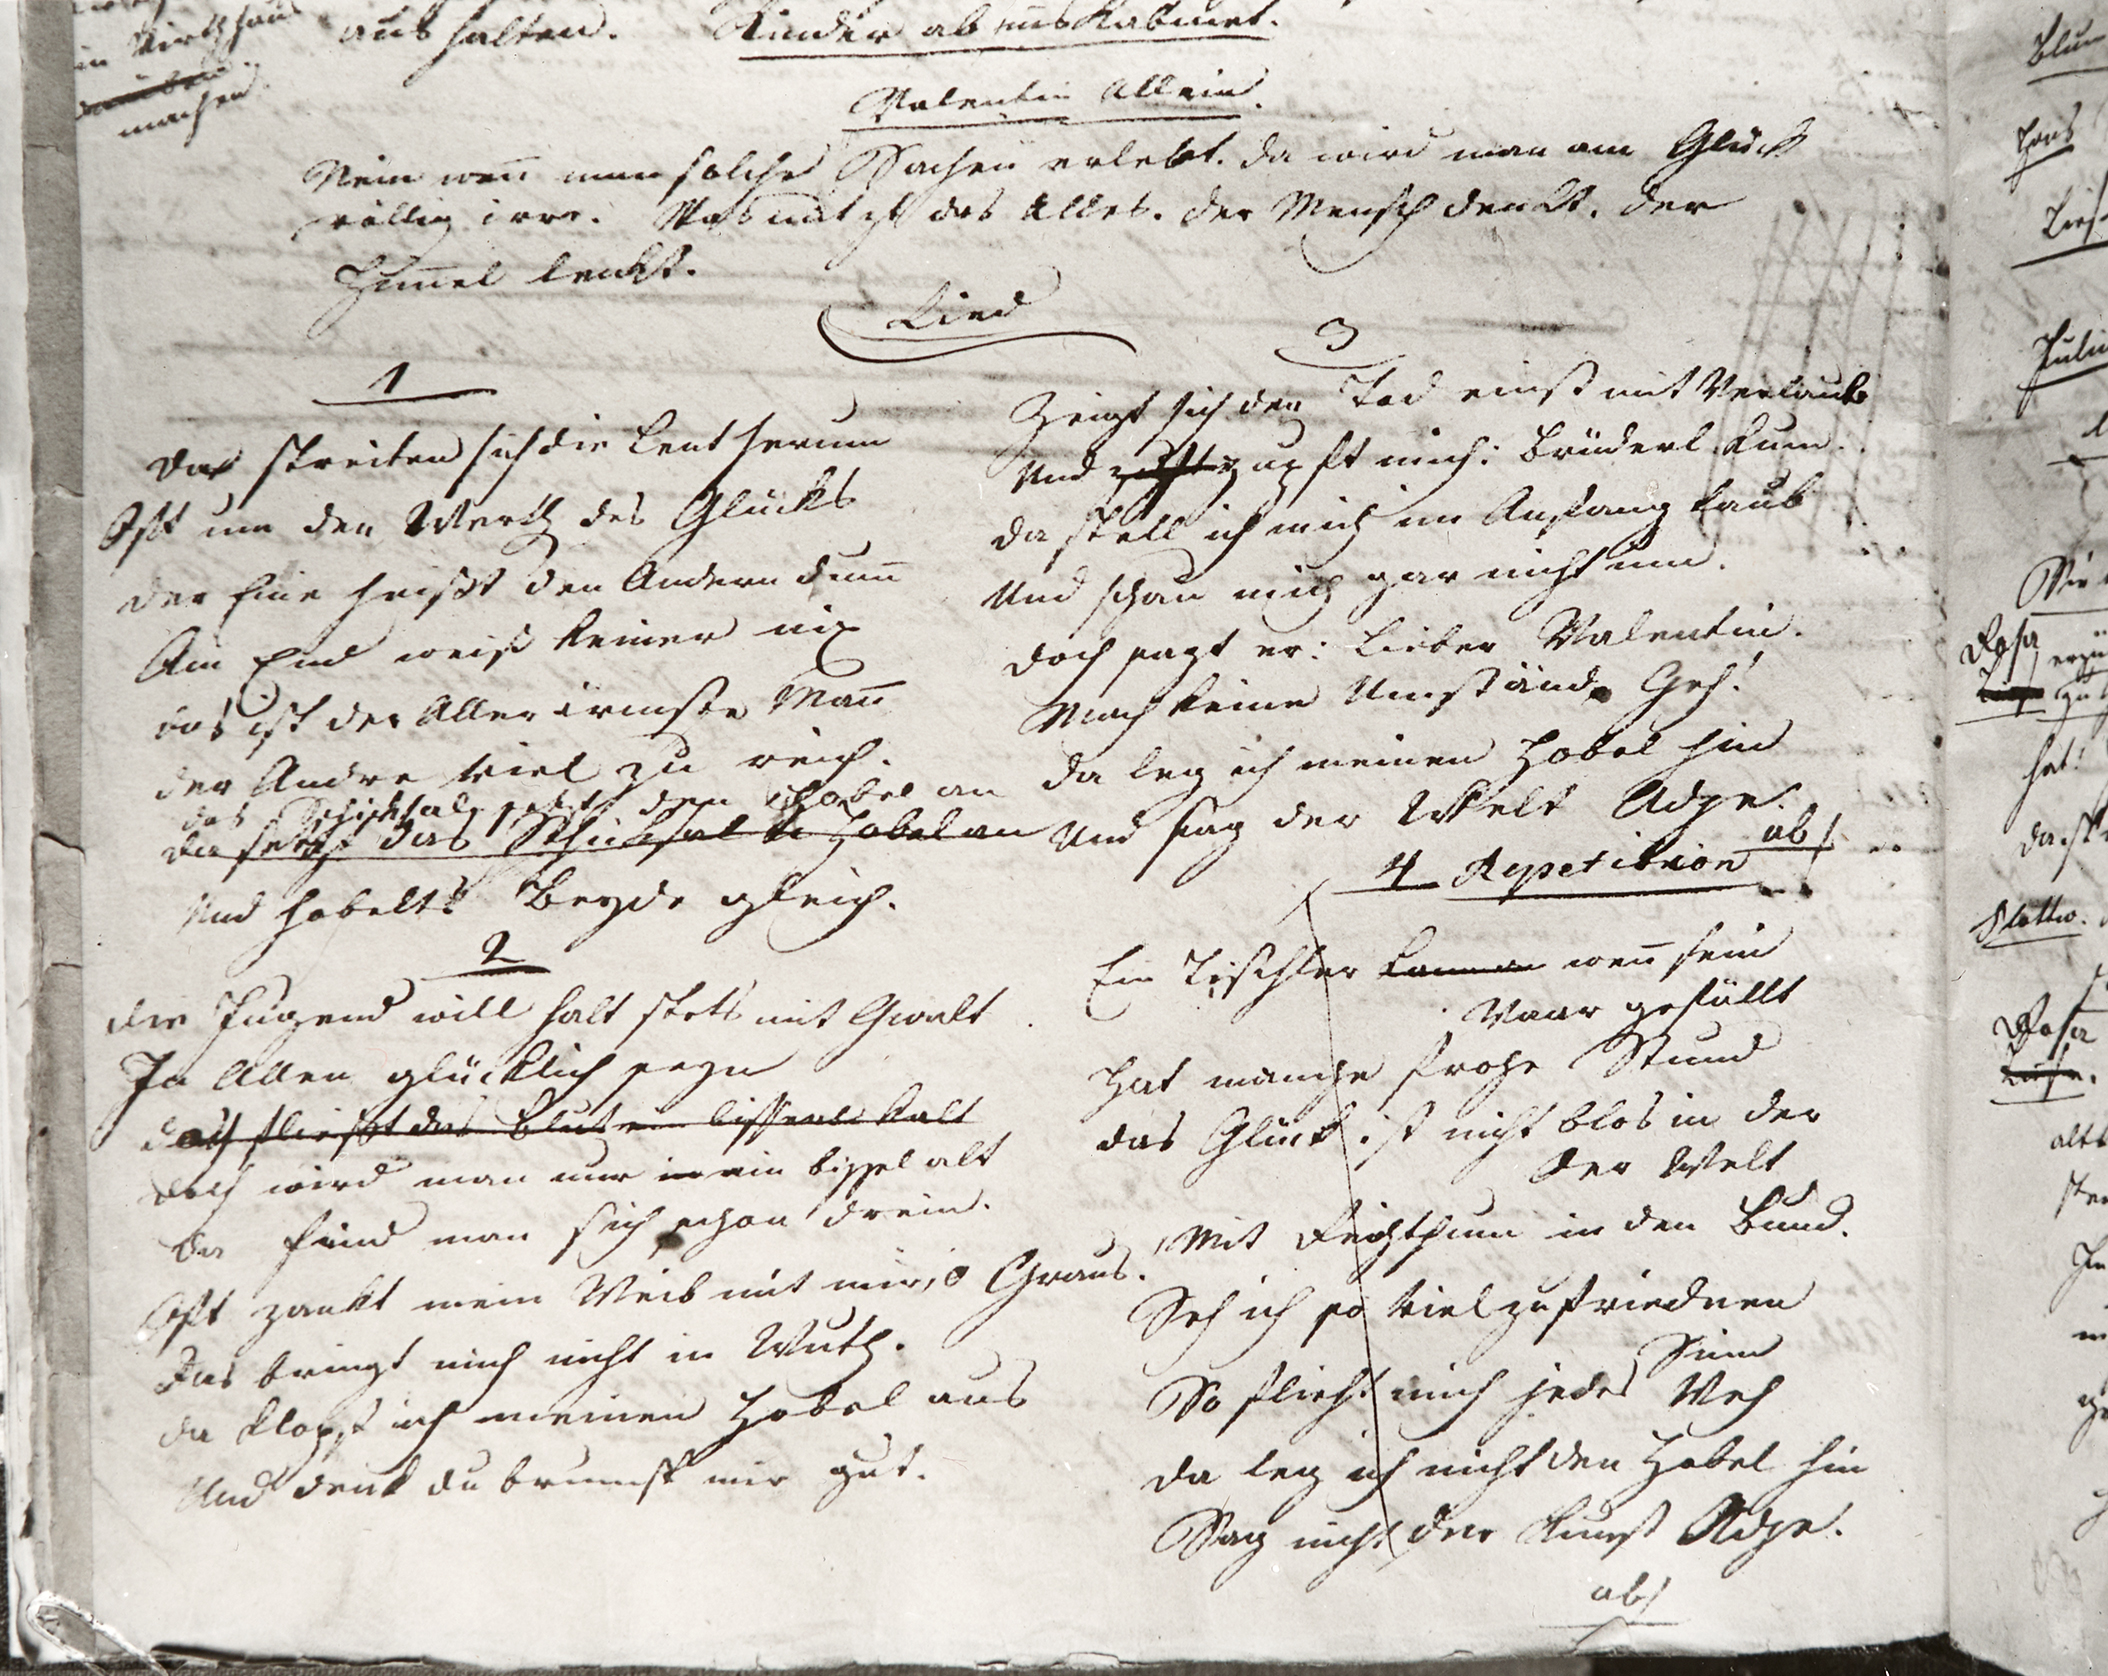 in Wirthhaus
machen
aushalten. Kinder ab ins Kabinet.
Valentin Allein.
Nein weñ man solche Sachen erlebt. da wird man am Glück
völlig irre. Was nützt das Alles. der Mensch denkt. der
Him̄el lenkt.
Lied
1
Da streiten sich die Leut herum
Oft um den Werth des Glücks
der Eine heißt den Andern dum̄
Am End weiß keiner nix
das ist der Allerärmste Mañ
der Andre viel zu reich.
das Schicksal setzt den Hobel an
Da setzt das Schicksal den Hobel an
Und hobelts Beyde gleich.
2
die Jugend will halt stets mit Gwalt
In Allen glücklich seyn
doch fließt das Blut ein bisserl kalt
doch wird man nur ein bissel alt
da find man sich schon drein.
Oft zankt mein Weib mit mir, o Graus.
das bringt mich nicht in Wuth.
da klopf ich meinen Hobel aus
Und denk du brumst mir gut.
3
Zeigt sich der Tod einst mit Verlaub
Und zupft mich: Brüderl kum.
da stell ich mich im Anfang taub
Und schau mich gar nicht um.
doch sagt er: Lieber Valentin.
Mach keine Umstände Geh!
da leg ich meinen Hobel hin
Und sag der Welt Adje.
ab/
4 Repetition
Ein Tischler weñ sein
Waar gefällt
Hat manche frohe Stund
das Glück ist nicht blos in der
der Welt
Mit Reichthum in den Bund.
Seh ich so viel zufriednen
Sinn
So flieht mich jedes Weh
da leg ich nicht den Hobel hin
Sag nicht der Kunst Adje.
ab/
Rosa
hat!
Flottw.
Rosa